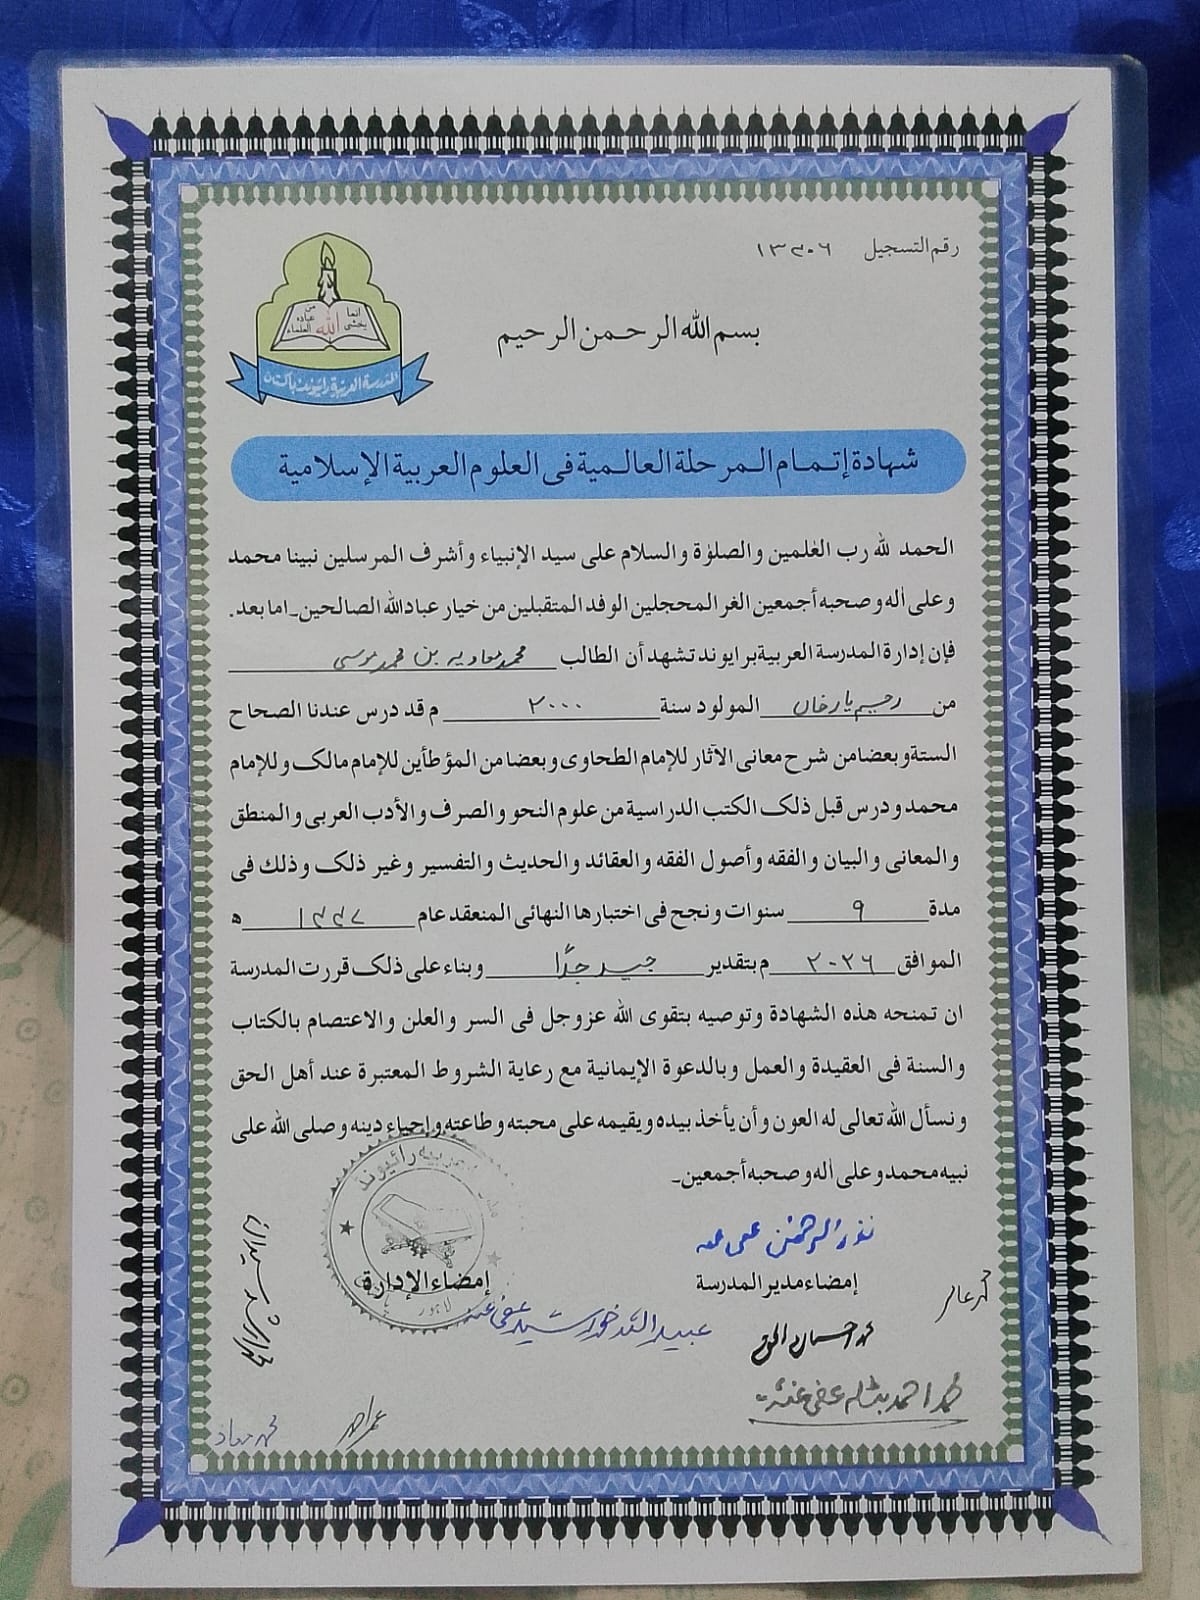 رقم التسجيل ١٣٤٠٦
انما يخشى الله من عباده العلماء
المدرسة العربية رائيوند باكستان
بسم الله الرحمن الرحيم
شهادة إتمام المرحلة العالمية فى العلوم العربية الإسلامية
الحمد لله رب العٰلمين والصلوٰة والسلام على سيد الإنبياء وأشرف المرسلين نبينا محمد
وعلى أله وصحبه أجمعين الغر المحجلين الوفد المتقبلين من خيار عباد الله الصالحين۔ اما بعد.
فإن إدارة المدرسة العربية برايوند تشهد أن الطالب محمد معاويه بن محمد موسى
من رحيم يار خان المولود سنة ٢٠٠٠ م قد درس عندنا الصحاح
الستة وبعضا من شرح معانى الآثار للإمام الطحاوى وبعضا من المؤطأين للإمام مالك وللإمام
محمد ودرس قبل ذلك الكتب الدراسية من علوم النحو والصرف والأدب العربى والمنطق
والمعانى والبيان والفقه وأصول الفقه والعقائد والحديث والتفسير وغير ذلك وذلك فى
مدة ٩ سنوات ونجح فى اختبارها النهائى المنعقد عام ١٤٤٧ ه
الموافق ٢٠٢٦ م بتقدير جيد جدًا وبناء على ذلك قررت المدرسة
ان تمنحه هذه الشهادة وتوصيه بتقوى الله عزوجل فى السر والعلن والاعتصام بالكتاب
والسنة فى العقيدة والعمل وبالدعوة الإيمانية مع رعاية الشروط المعتبرة عند أهل الحق
ونسأل الله تعالى له العون وأن يأخذ بيده ويقيمه على محبته وطاعته وإحياء دينه وصلى الله على
نبيه محمد وعلى أله وصحبه أجمعين۔
نذر الرحمٰن عفى عنه
إمضاء مدير المدرسة
عربيه رائيوند
لاهور
إمضاء الإدارة
عبيد الله خورشيد عفى عنه
محمد احسان الحق
محمد معاذ